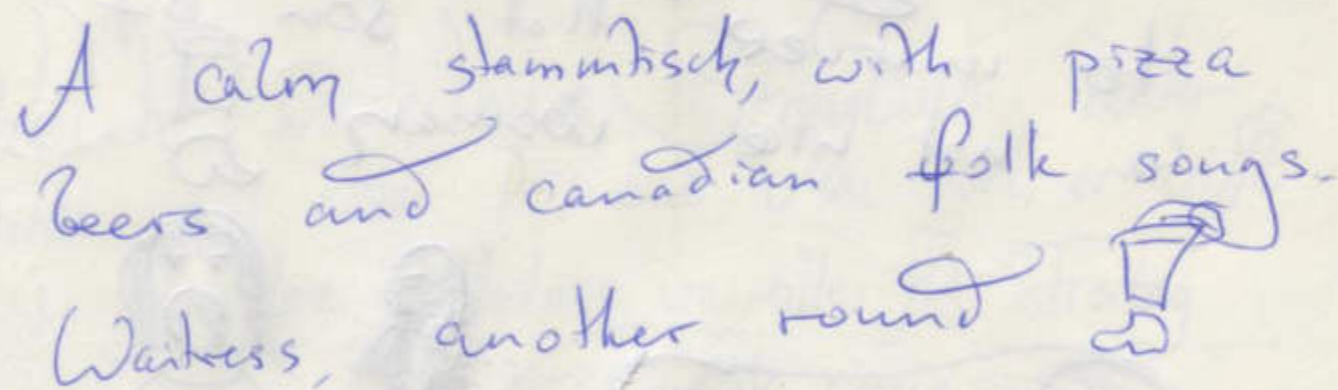 A calm stammtisch, with pizza
beers and canadian folk songs.
Waitress, another round